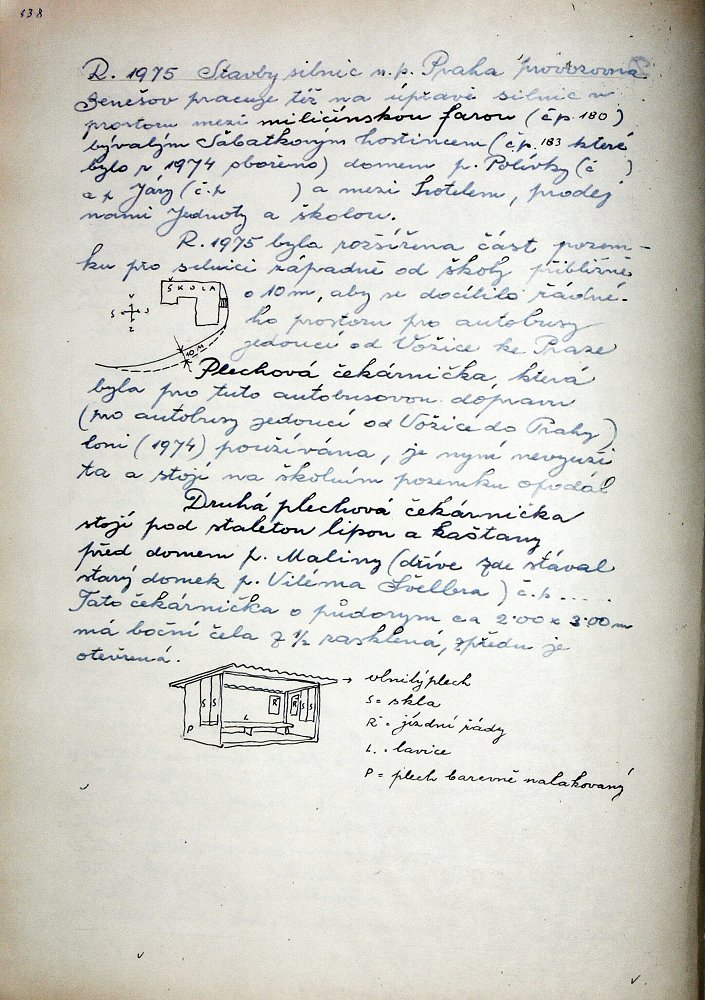 438
R. 1975 Stavby silnic n.p. Praha provozovna
Benešov pracuje též na úpravě silnic v
prostoru mezi miličínskou farou (č.p. 180)
bývalým Sábatkovým hostincem (č.p. 183 které
bylo r 1974 obořeno) domem p. Polívky (č )
a p Járy (č.p ) a mezi hotelem, prodej
nami Jednoty a školou.
R. 1975 byla rozšířena část pozem-
ku pro silnici západně od školy přibližně
o 10 m, aby se docílilo řádné-
ho prostoru pro autobusy
jedoucí od Vožice ke Praze
ŠKOLA
V
S J
Z
10 M
Plechová čekárnička, která
byla pro tuto autobusovou dopravu
(pro autobusy jedoucí od Vožice do Prahy)
loni (1974) používána, je nyní nevyuži
ta a stojí na školním pozemku opodál
Druhá plechová čekárnička
stojí pod staletou lípou a kaštany
před domem p. Maliny (dříve zde stával
starý domek p. Viléma Švellera) č.p.....
Tato čekárnička o půdorym ca 2·00 x 3·00 m
má boční čela z 1/2 zasklená, zpředu je
otevřená.
S S R R S S
L
P
vlnitý plech
S = skla
R = jízdní řády
L = lavice
P = plech barevně nalakovaný